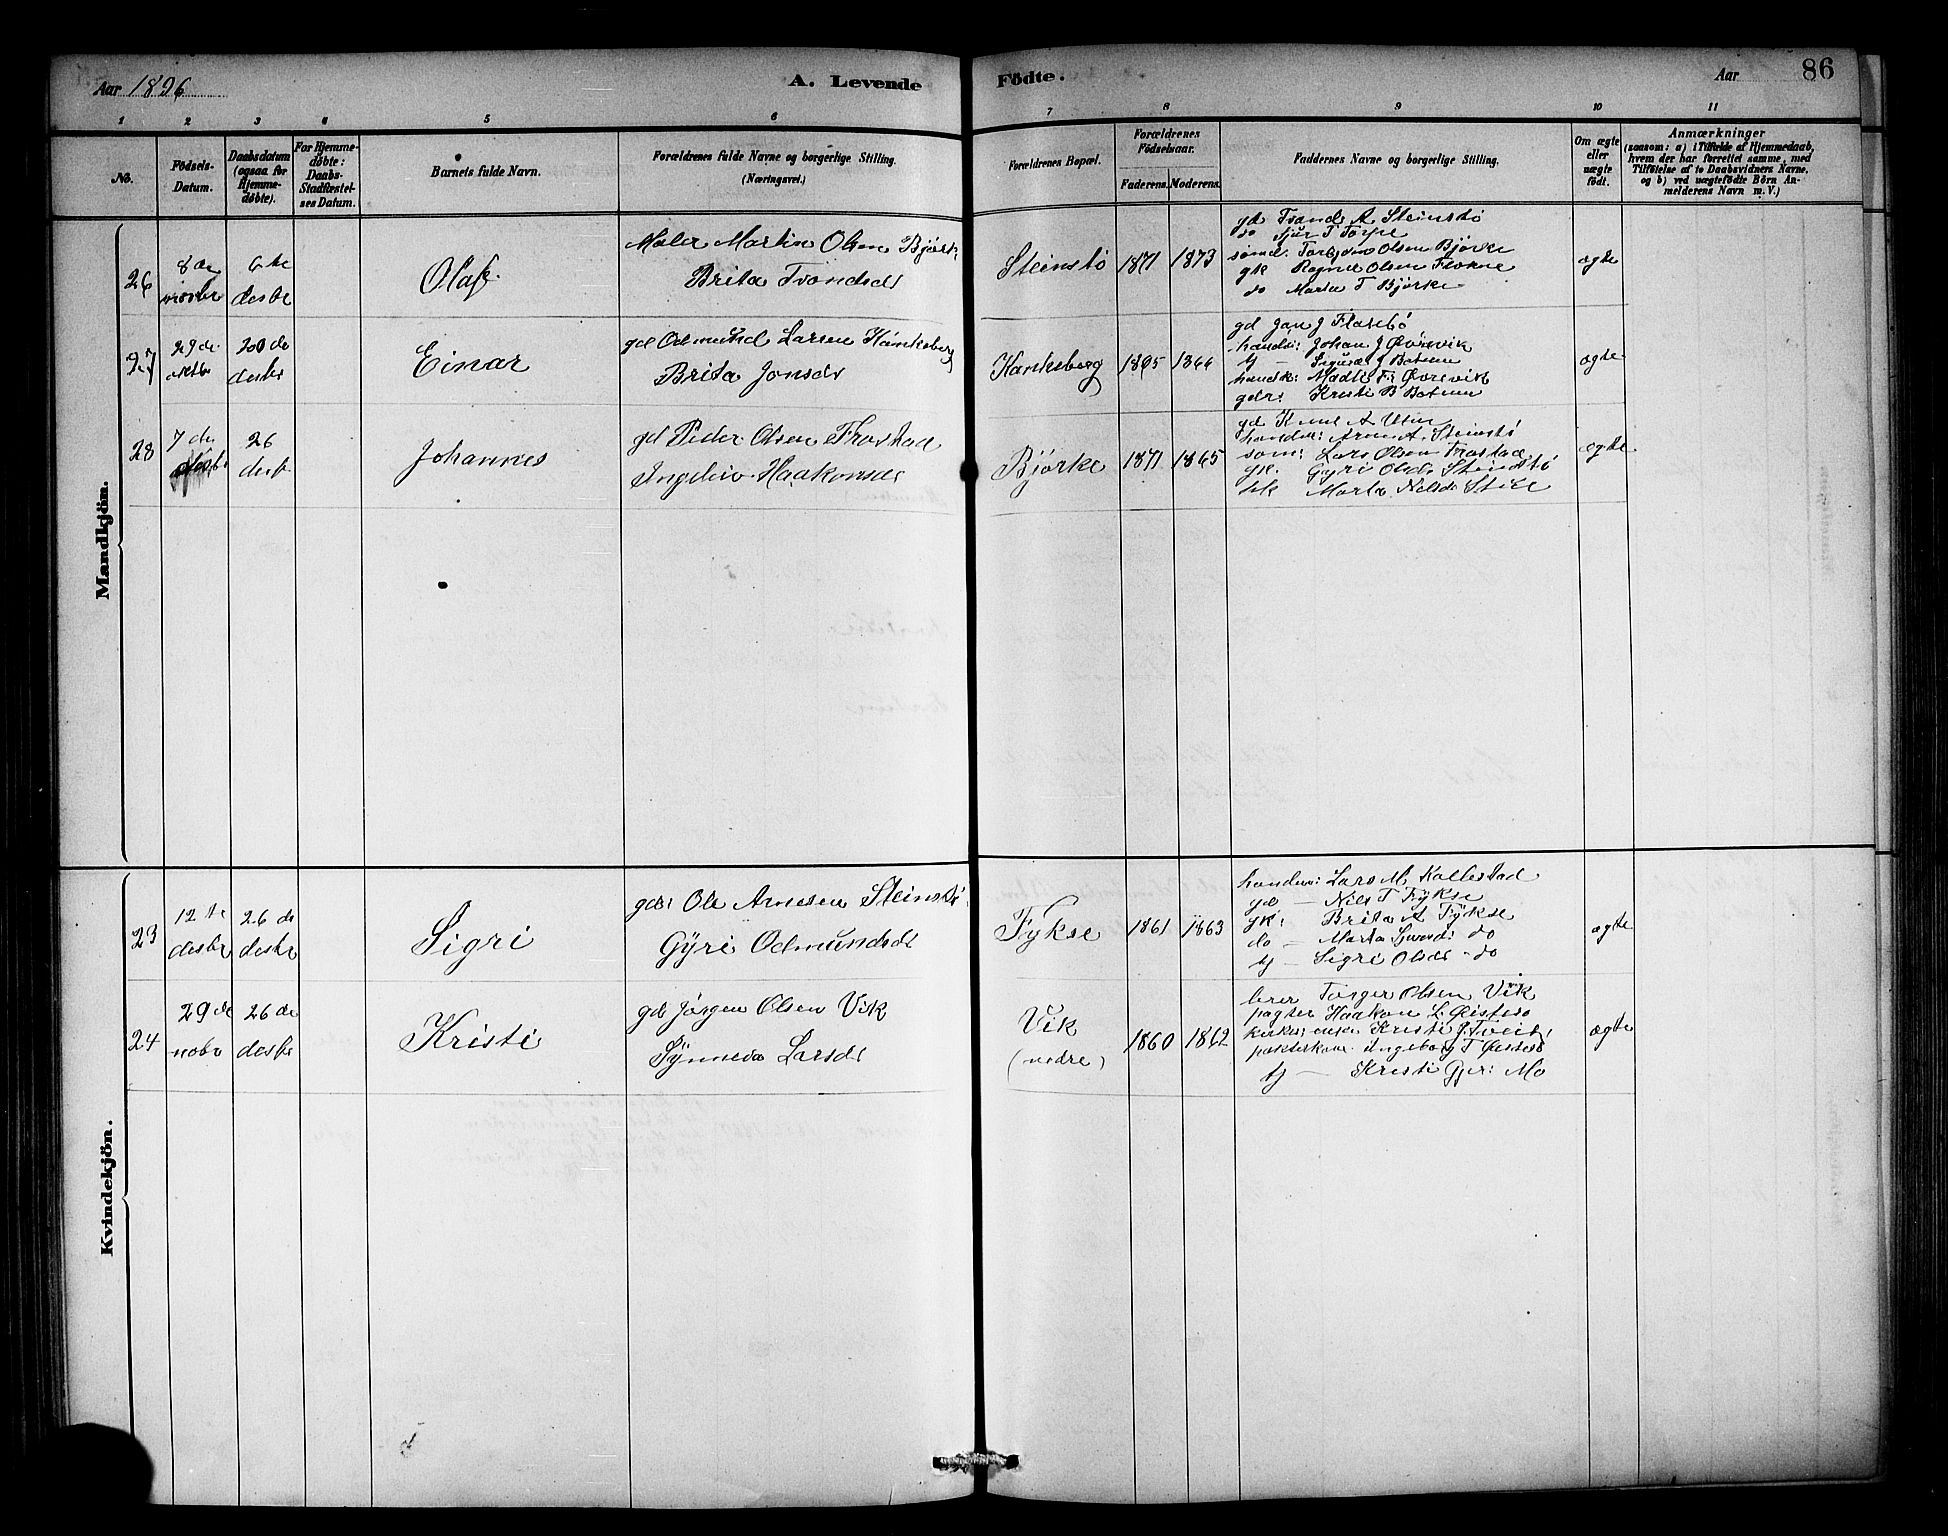 Aar 1896
A. Levende
Födte.
Aar
86
1 2 3 4 5 6 7 8 9 10 11
No.
Födsels-Datum.
Daabsdatum (ogsaa for Hjemme-døbte).
For Hjemme-døbte: Daabs-Stadfæstel-ses Datum.
Barnets fulde Navn.
Forældrenes fulde Navne og borgerlige Stilling.
(Næringsvei.)
Forældrenes Bopæl.
Forældrenes Fødselsaar.
Faderens. Moderens.
Faddernes Navne og borgerlige Stilling.
Om ægte eller uægte födt.
Anmærkninger
(saasom: a) i Tilfælde af Hjemmedaab, hvem der har forrettet samme, med Tilföielse af to Daabsvidners Navne, og b) ved uægtefödte Börn An-melderens Navn m. V.)
Mandkjön.
26
8de
6te desbr
Olaf
Maler Martin Olsen Bjørk
Brita Trondsd
Steinstø
1871 1873
gd Trond A Steinstø
do Sjur T Torpe
sømd. Torbjørn Olsen Bjørke
gk Ragna Olsen Flotne
do Marta T Bjørke
ægte
27
29de oktbr
20de desbr
Einar
gd Odmund Larsen Kanksberg
Brita Jonsdr
Kanksberg
1865 1866
gd Jon J Flatebø
handm: Johan J Øvrevik
tj — Sigurd J Botnen
handk: Madli F: Øvrevik
gdr: Kristi B Botnen
ægte
28
7de desbr
26 desbr
Johannes
gd Peder Olsen Trastad
Ingeliv Haakonsdr
Bjørke
1871 1865
gd Knut A
handm: Arne A. Steinstø
søm: Lars Olsen Trastad
gk. Gyri Olsd. Steinstø
hk Marta Nelsd
ægte
Kvindekjön.
23
12te desbr
26de desbr
Sigri
gdr Ole Arnesen Steinstø
Gÿri Odmundsdr
Fykse
1861 1863
handm: Lars M. Kallestad
gd — Nils T Fÿkse
gk: Brita A Fÿkse
do — Marta do
tj — Sigri Olsdr do
ægte
24
29de nobr
26de desbr
Kristi
gd Jørgen Olsen Vik
Sÿnneva Larsdr
Vik
(nedre)
1860 1862
lærer Torger Olsen Vik
pagter Haakon L. Øistese
Kristi J. Tveit
pakterkone Ingeborg T Øistese
tj — Kristi Gjer: Mo
ægte